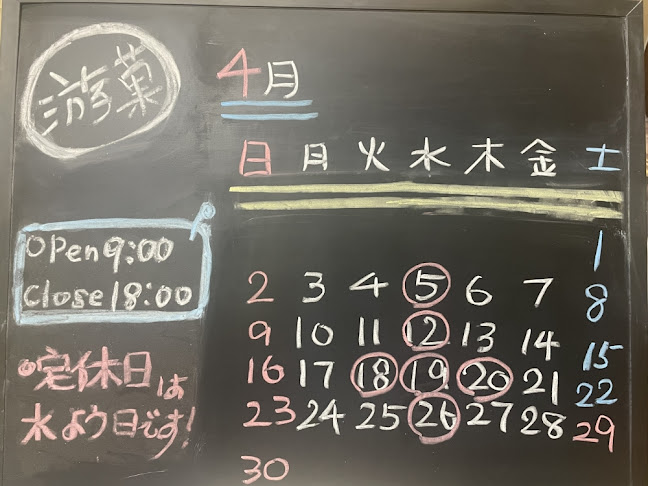 游菓
4月
日 月 火 水 木 金 土
1
2 3 4 5 6 7 8
9 10 11 12 13 14 15
16 17 18 19 20 21 22
23 24 25 26 27 28 29
30
open 9:00
close 18:00
定休日は
水よう日です!